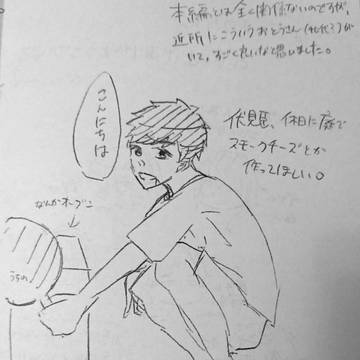 本編とは全く関係ないのですが、
近所にこういうおとうさん(30代?)が
いて、すごくれいなと思いました。
伏見、休日に庭で
スモークチーズとか
作ってほしい。
こんにちは
なんかオーブン
うちわ